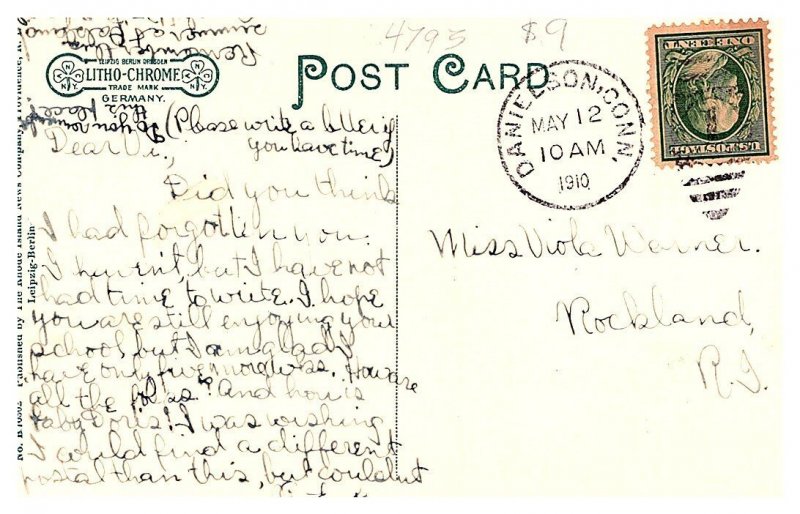 4793 $9
LEIPZIG BERLIN DRESDEN
LITHO-CHROME
TRADE MARK
GERMANY.
N.Y. N.Y.
POST CARD
DANIELSON, CONN.
MAY 12
10 AM
1910
ONE CENT
U.S. POSTAGE
(Please write a letter if
you have time)
Dear Vi.,
Did you think
I had forgotten you.
I haven't, but I have not
had time to write. I hope
you are still enjoying your
school but I am glad I
have only five more wks. How are
all the folks? And how is
baby Doris? I was wishing
I could find a different
postal than this, but couldn't
Do you remember
this place
Remember the
summer at
Miss Viola Warner.
Rockland,
R.I.
No. B 10302 Published by The Rhode Island News Company, Providence, R.I.
Leipzig-Berlin